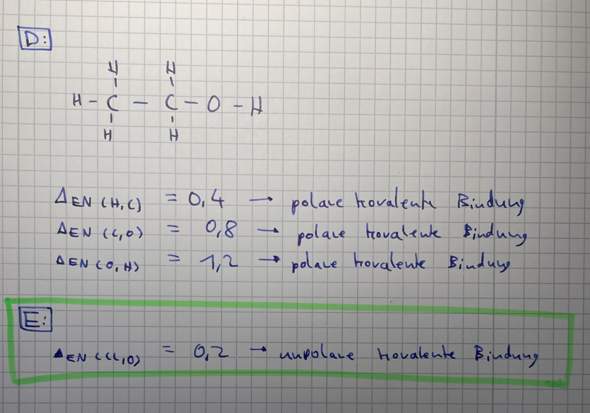 D:
H H
H - C - C - O - H
H H
ΔEN (H,C) = 0,4 → polare kovalente Bindung
ΔEN (C,O) = 0,8 → polare kovalente Bindung
ΔEN (O,H) = 1,2 → polare kovalente Bindung
E:
ΔEN (Cl,O) = 0,2 → unpolare kovalente Bindung